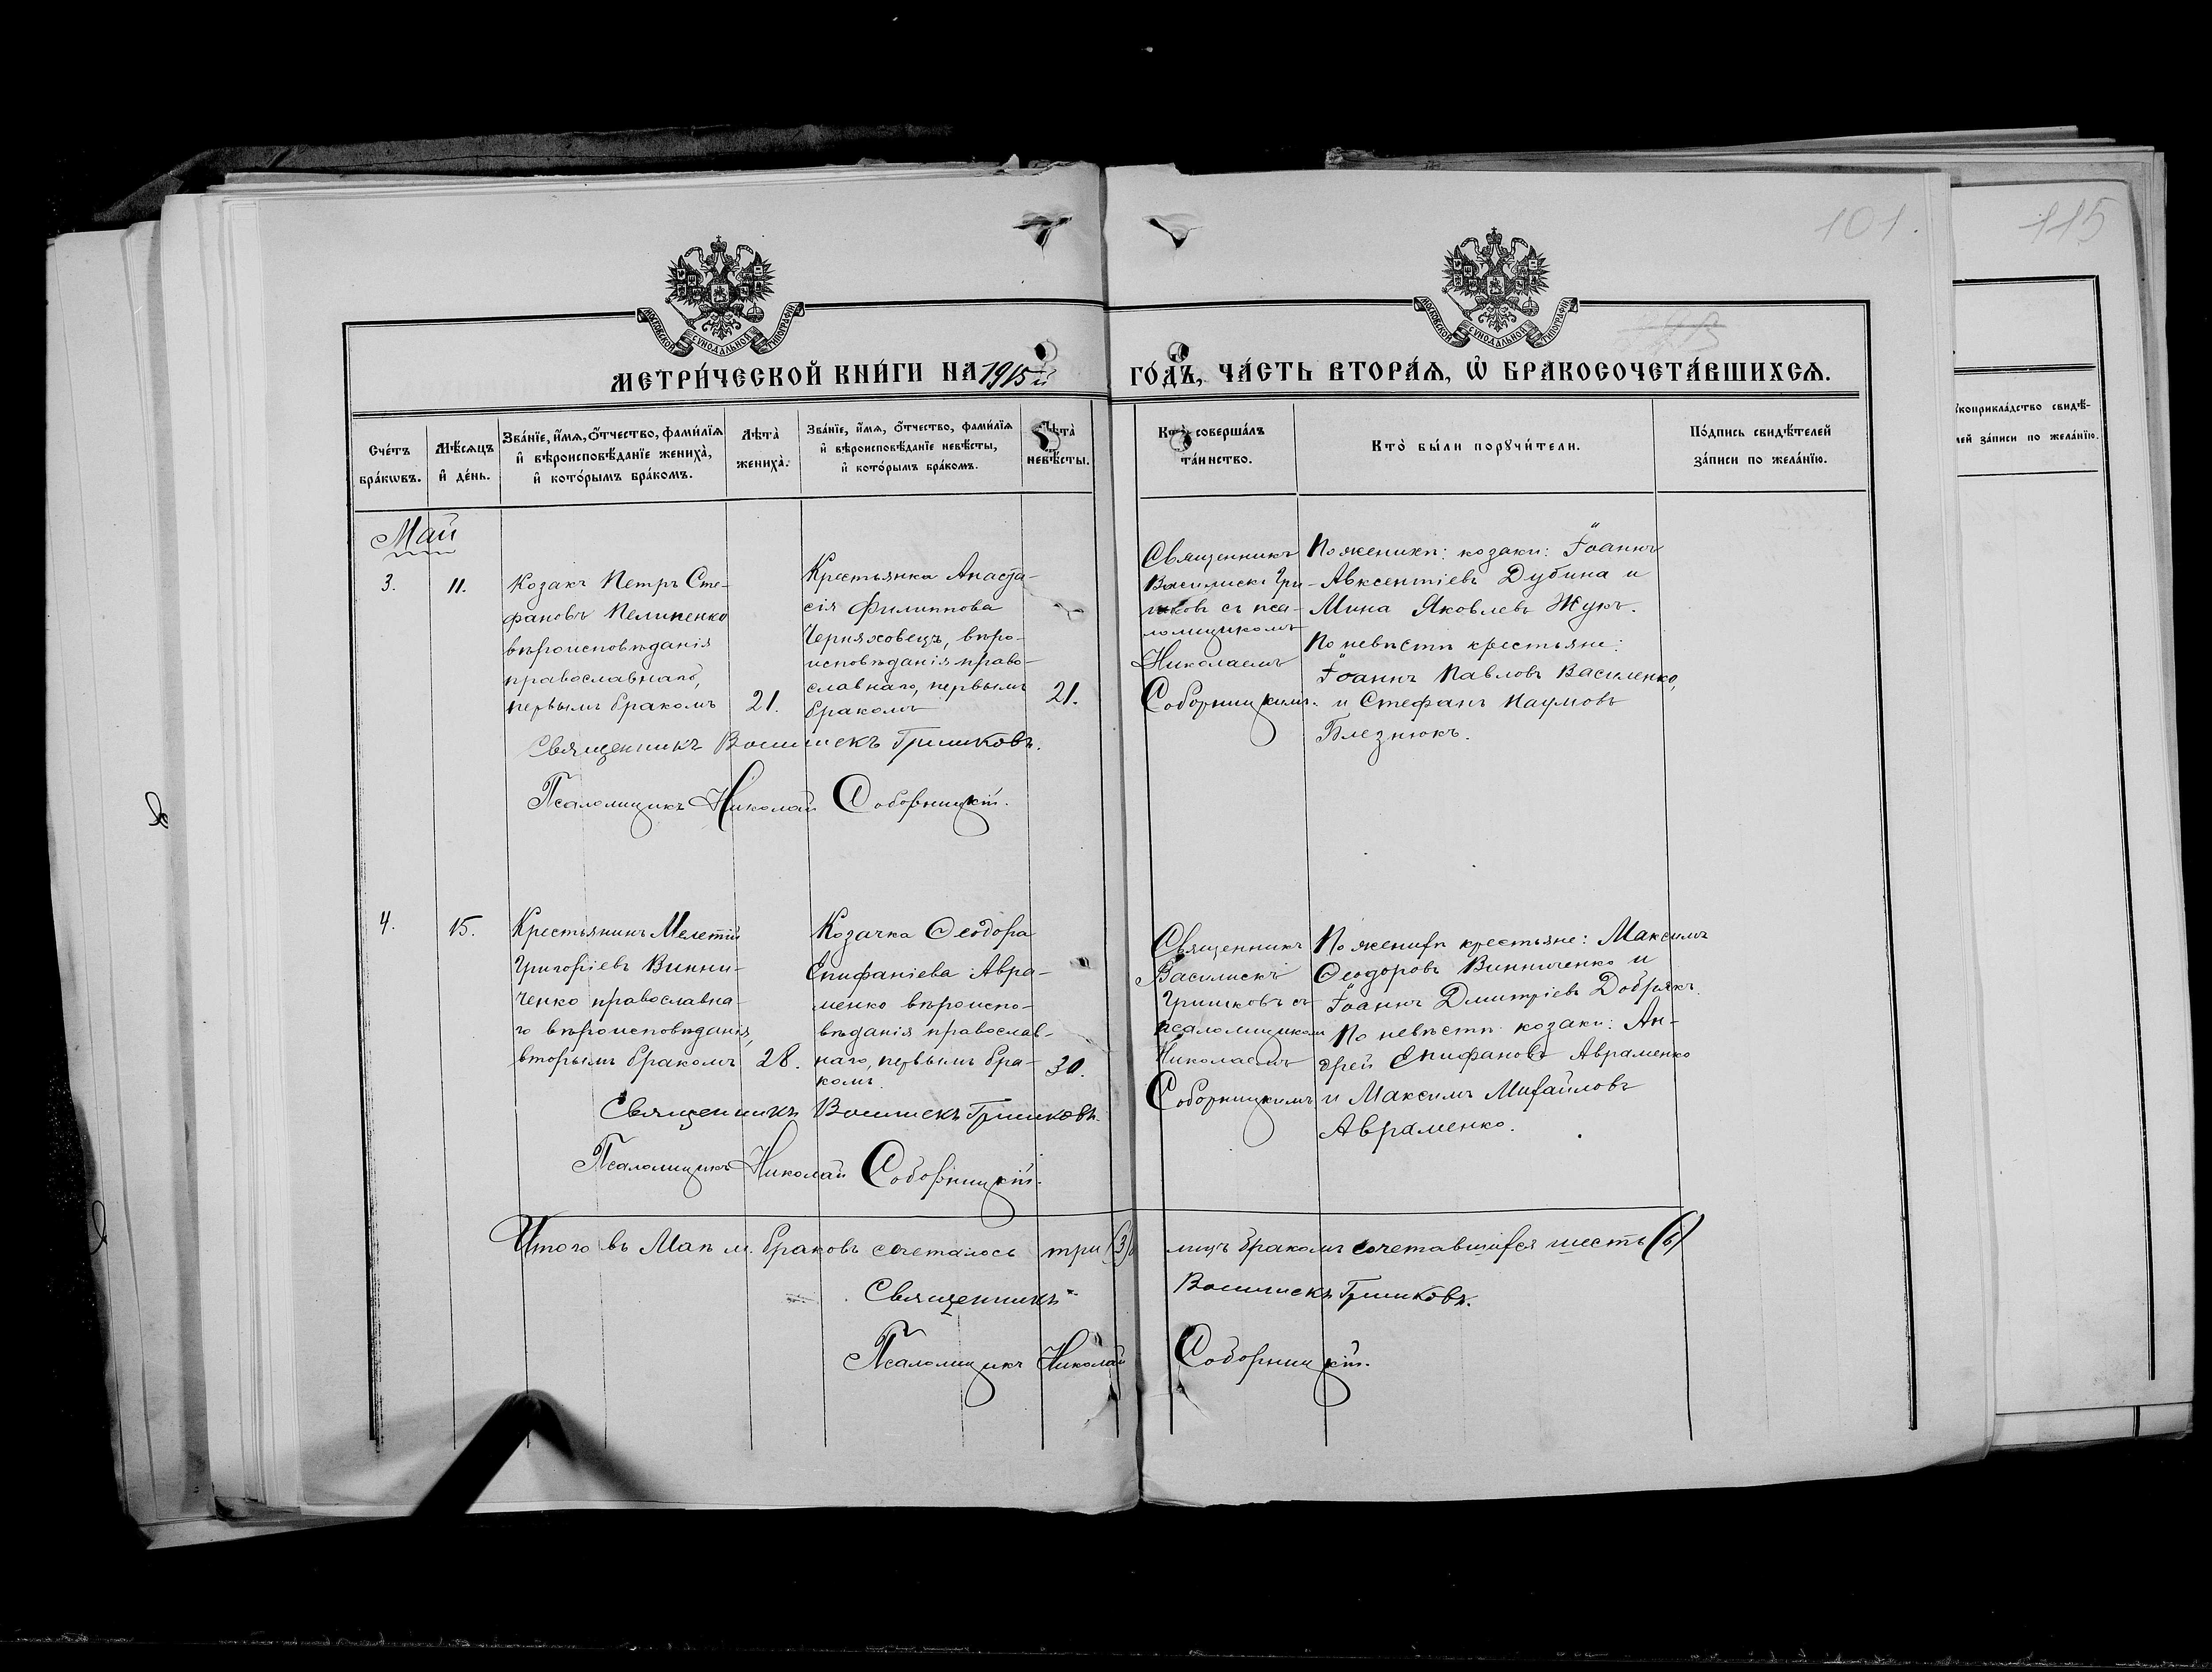 101.
115
МОСКОВСКОЙ СУНОДАЛЬНОЙ ТИПОГРАФІИ
МОСКОВСКОЙ СУНОДАЛЬНОЙ ТИПОГРАФІИ
МЕТРИ́ЧЕСКОЙ КНИ́ГИ НА 1915 й ГО́ДЪ, ЧА́СТЬ ВТОРА́Ѧ, Ѡ҆ БРАКОСОЧЕТА́ВШИХСѦ.
Сче́тъ бра́кѡвъ.
Мѣ́сѧцъ и҆ де́нь.
Зва́нїе, и҆́мѧ, о҆́тчество, фами́лїѧ
и҆ вѣроисповѣ́данїе жениха̀,
и҆ кото́рымъ бра́комъ.
Лѣта̀ жениха̀.
Зва́нїе, и҆́мѧ, о҆́тчество, фами́лїѧ
и҆ вѣроисповѣ́данїе невѣ́сты,
и҆ кото́рымъ бра́комъ.
Лѣта̀ невѣ́сты.
Кто̀ соверша́лъ
та́инство.
Кто̀ бы́ли порꙋчи́тели.
По́дпись свидѣ́телей
за́писи по жела́нїю.
Май
3.
11.
Козакъ Петръ Сте-
фановъ Пелипенко
вѣроисповѣданія
православнаго,
первымъ бракомъ
21.
Крестьянка Анаста-
сія Филиппова
Черняховецъ, вѣро-
исповѣданія право-
славнаго, первымъ
бракомъ
21.
Священникъ
Василискъ Гри-
шковъ съ пса-
ломщикомъ
Николаемъ
Соборницкимъ.
По женихѣ: козаки: Іоаннъ
Авксентіевъ Дубина и
Мина Яковлевъ Жукъ.
По невѣстѣ крестьяне:
Іоаннъ Павловъ Василенко,
и Стефанъ Наумовъ
Блезнюкъ.
Священникъ Василискъ Гришковъ.
Псаломщикъ Николай Соборницкій.
4.
15.
Крестьянинъ Мелетій
Григоріевъ Винни-
ченко православна-
го вѣроисповѣданія,
вторымъ бракомъ
28.
Козачка Ѳеодора
Епифаніева Авра-
менко вѣроиспо-
вѣданія православ-
наго, первымъ бра-
комъ.
30.
Священникъ
Василискъ
Гришковъ съ
псаломщикомъ
Николаемъ
Соборницкимъ
По женихѣ крестьяне: Максимъ
Ѳеодоровъ Винниченко и
Іоаннъ Дмитріевъ Добрякъ.
По невѣстѣ козаки: Ан-
дрей Епифановъ Авраменко
и Максимъ Михайловъ
Авраменко.
Священникъ Василискъ Гришковъ.
Псаломщикъ Николай Соборницкій.
Итого въ Маѣ м. браковъ сочеталось три (3) лицъ бракомъ сочетавшихся шесть (6)
Священникъ Василискъ Гришковъ.
Псаломщикъ Николай Соборницкій.